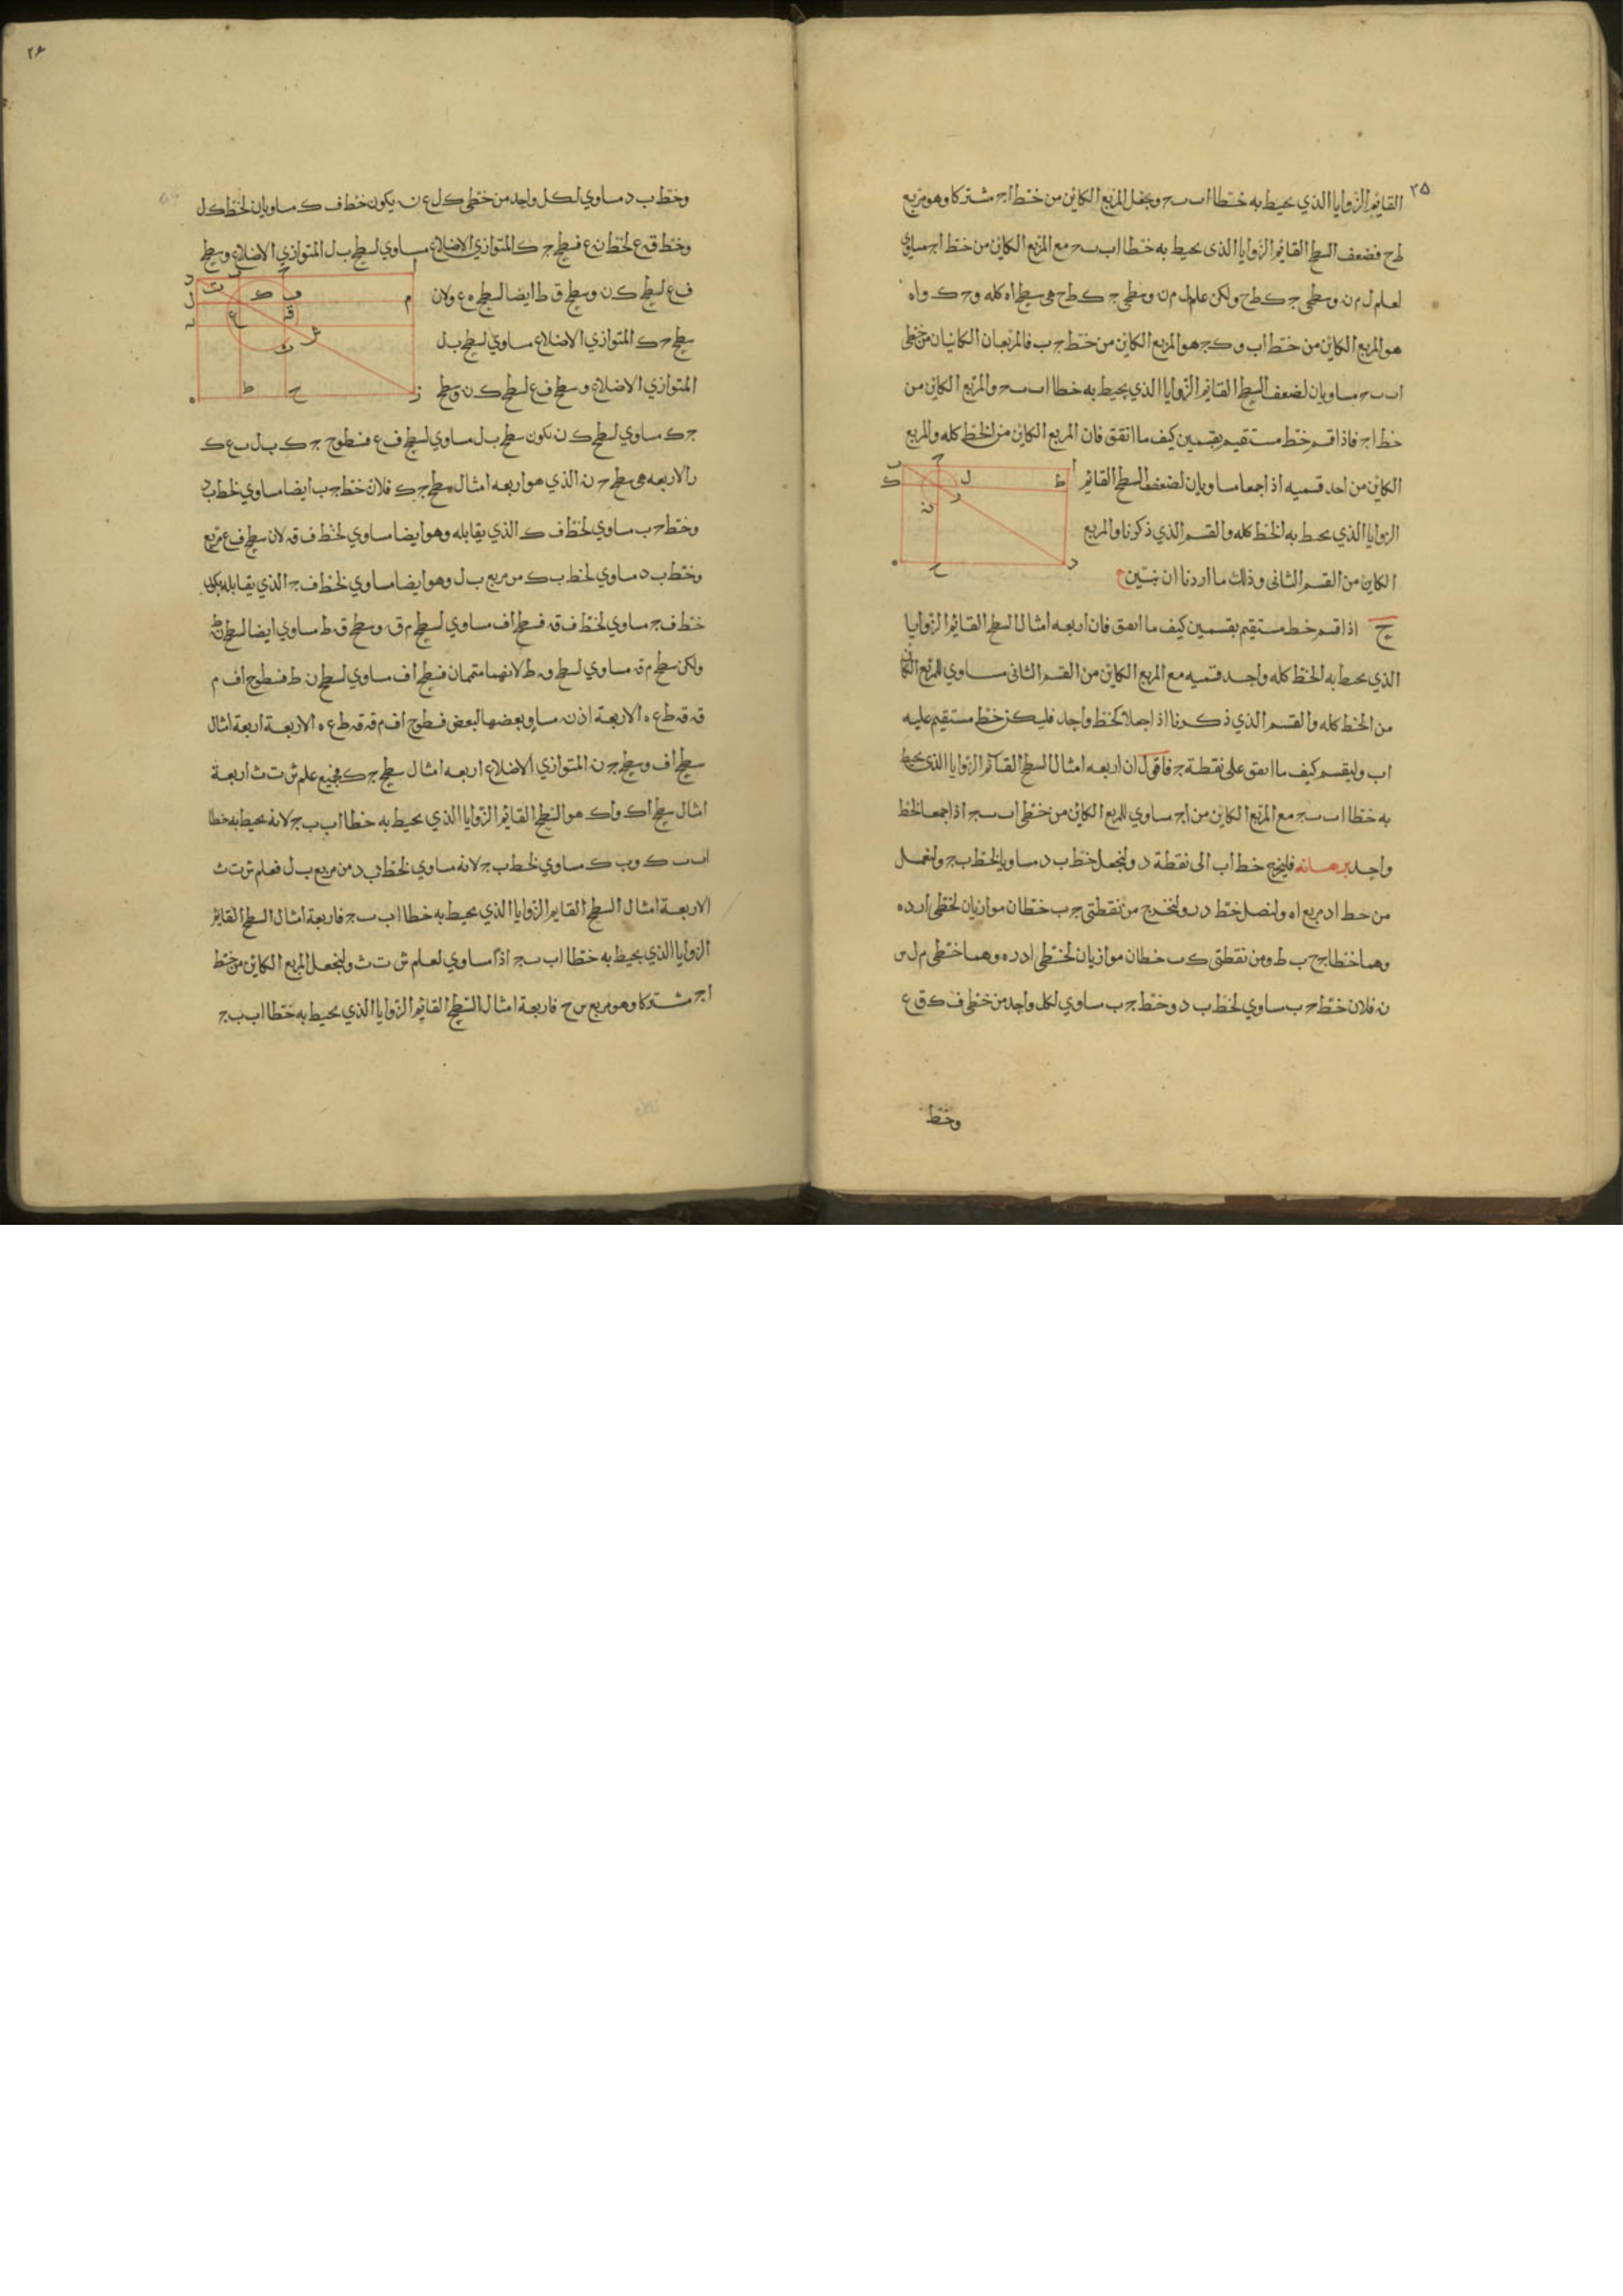 ٢٥
القايم الزوايا الذي يحيط به خطا اب بـح ونجعل المربع الكاين من خط اجـ مشتركا وهو مربع
طح فضعف السطح القايم الزوايا الذي يحيط به خطا اب بـح مع المربع الكاين من خط اجـ مساوي
لعلم ل م ن وسطحي جـ ك طح ولكن علم ل م ن وسطحي جـ ك طح هي سطح اه كله و حـ ك و اه
هو المربع الكاين من خط اب و كجـ هو المربع الكاين من خط جـ ب فالمربعان الكاينان من خطي
اب بـح مساويان لضعف السطح القايم الزوايا الذي يحيط به خطا اب بـح والمربع الكاين من
خط اجـ فاذا قسم خط مستقيم بقسمين كيف ما اتفق فان المربع الكاين من الخط كله والمربع
الكاين من احد قسميه اذا جمعا مساويان لضعف السطح القايم
الزوايا الذي يحيط به الخط كله والقسم الذي ذكرنا والمربع
الكاين من القسم الثاني وذلك ما اردنا ان نبين
ح اذا قسم خط مستقيم بقسمين كيف ما اتفق فان اربعه امثال السطح القايم الزوايا
الذي يحيط به الخط كله واحد قسميه مع المربع الكاين من القسم الثاني مساوي للمربع الكاين
من الخط كله والقسم الذي ذكرنا اذا جعلا كخط واحد فليكن خط مستقيم عليه
اب وليقسم كيف ما اتفق على نقطة جـ فاقول ان اربعه امثال السطح القائم الزوايا الذي يحيط
به خطا اب بـجـ مع المربع الكاين من اجـ مساوي للمربع الكاين من خطي اب بـجـ اذا جمعا كخط
واحد برهانه فليخرج خط اب الى نقطة د ولنجعل خط ب د مساويا لخط ب جـ ولنعمل
من خط اد مربع اه ولنصل خط در ولنخرج من نقطتي جـ ب خطان موازيان لخطي ار ده
وهما خطا جح ب ط ومن نقطتي ك ب خطان موازيان لخطي اد ره وهما خطي م ل س
ن فلان خط حـ ب مساوي لخط ب د وخط جـ ب مساوي لكل واحد من خطي ف ك ق ع
وخط
٢۶
وخط ب د مساوي لكل واحد من خطي ك ل ع ن يكون خط ف ك مساويان لخط ك ل
وخط ق ع لخط ن ع فسطح جـ ك المتوازي الاضلاع مساوي لسطح ب ل المتوازي الاضلاع وسطح
ف ع لسطح ك ن وسطح ق ط ايضا لسطح ه ع ولان
سطح حـ ك المتوازي الاضلاع مساوي لسطح ب ل
المتوازي الاضلاع وسطح ف ع لسطح ك ن وسطح
جـ ك مساوي لسطح ك ن يكون سطح ب ل مساوي لسطح ف ع فسطوح جـ ك ب ل ف ع ك
ن الاربعه هي سطح حـ ن الذي هو اربعه امثال سطح جـ ك فلان خط جـ ب ايضا مساوي لخط ب د
وخط حـ ب مساوي لخط ف ك الذي يقابله وهو ايضا مساوي لخط ف ق لان سطح ف ع مربع
وخط ب د مساوي لخط ب ك من مربع ب ل وهو ايضا مساوي لخط ف جـ الذي يقابله يكون
خط ف جـ مساوي لخط ف ق فسطح اف مساوي لسطح م ق وسطح ق ط مساوي ايضا لسطح ن ط
ولكن سطح م ق مساوي لسطح ق ط لانهما متممان فسطح اف مساوي لسطح ن ط فسطوح اف م
ق ق ط ع ه الاربعة اذن مساو بعضها لبعض فسطوح اف م ق ق ط ع ه الاربعة اربعة امثال
سطح اف وسطح جـ ن المتوازي الاضلاع اربعه امثال سطح جـ ك فجميع علم ش ت ث اربعة
امثال سطح اك واك هو السطح القائم الزوايا الذي يحيط به خطا اب ب جـ لانه يحيط به خطا
اب ب ك و ب ك مساوي لخط ب جـ لانه مساوي لخط ب د من مربع ب ل فعلم ش ت ث
الاربعة امثال السطح القايم الزوايا الذي يحيط به خطا اب بـجـ فاربعة امثال السطح القايم
الزوايا الذي يحيط به خطا اب بـجـ اذا مساوي لعلم ش ت ث ولنجعل المربع الكاين من خط
اجـ مشتركا وهو مربع س ح فاربعة امثال السطح القايم الزوايا الذي يحيط به خطا اب ب جـ